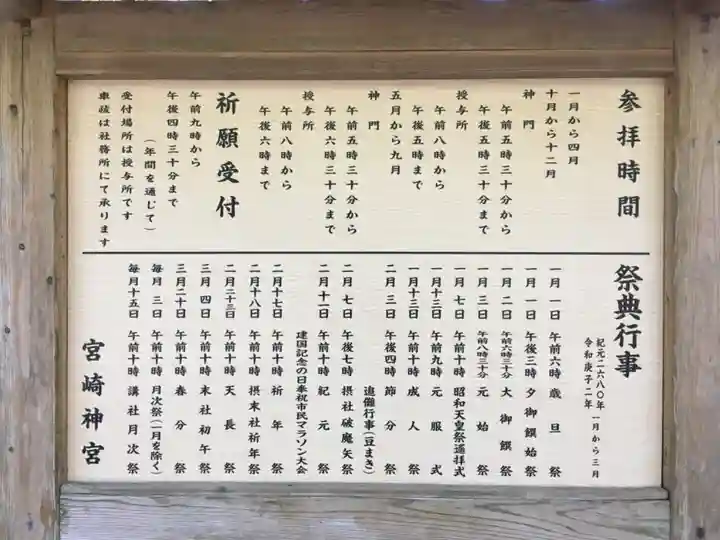 参拝時間
一月から四月
十月から十二月
神門
午前五時三十分から
午後五時三十分まで
授与所
午前八時から
午後五時まで
五月から九月
神門
午前五時三十分から
午後六時三十分まで
授与所
午前八時から
午後六時まで
祈願受付
午前九時から
午後四時三十分まで
(年間を通じて)
受付場所は授与所です
車祓は社務所にて承ります
祭典行事
紀元二六八〇年
令和庚子二年
一月から三月
一月一日 午前六時 歳旦祭
一月一日 午後三時 夕御饌始祭
一月二日 午前六時三十分 大御饌祭
一月三日 午前八時三十分 元始祭
一月七日 午前十時 昭和天皇祭遥拝式
一月十三日 午前九時 元服式
一月十三日 午前十時 成人祭
二月三日 午後四時 節分祭
追儺行事(豆まき)
二月七日 午後七時 摂社破魔矢祭
二月十一日 午前十時 紀元祭
建国記念の日奉祝市民マラソン大会
二月十七日 午前十時 祈年祭
二月十八日 午前十時 摂末社祈年祭
二月二十三日 午前十時 天長祭
三月四日 午前十時 末社初午祭
三月二十日 午前十時 春分祭
毎月三日 午前十時 月次祭(一月を除く)
毎月十五日 午前十時 講社月次祭
宮崎神宮